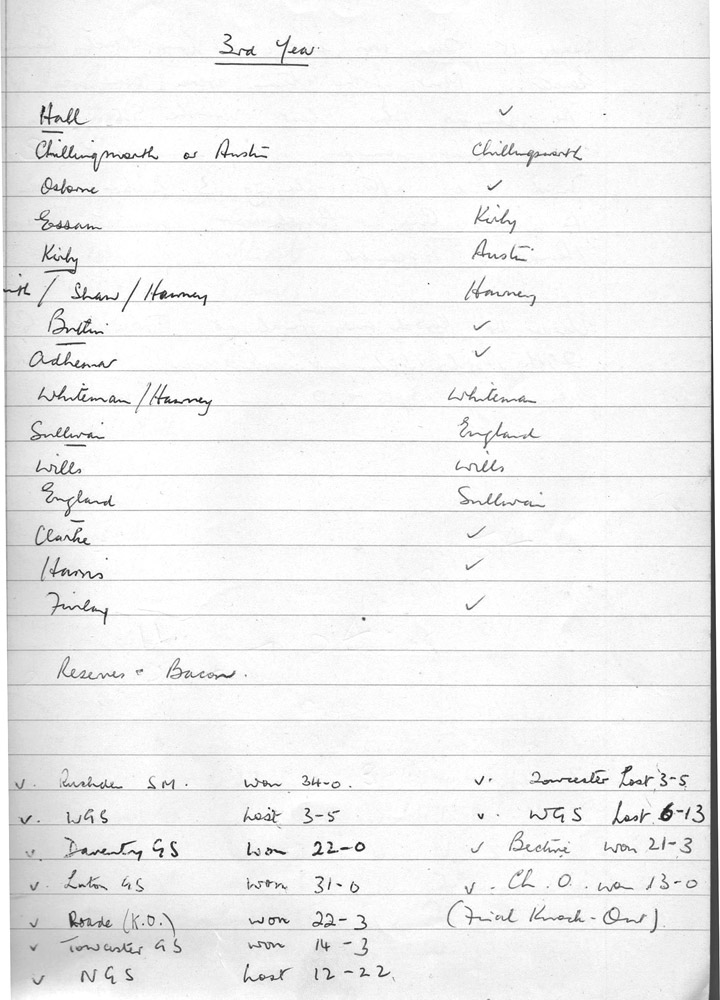 3rd Year.
Hall ✓
Chillingworth or Austin Chillingworth
Osborne ✓
Essam Kirby
Kirby Austin
/ Shaw / Hawney Hawney
✓
Adhemar ✓
Whiteman / Hawney Whiteman
Sullivan England
Wills Wills
England Sullivan
Clarke ✓
Harris ✓
Finlay ✓
Reserves - Bacon.
v. Rushden SM. won 34-0. v. Towcester Lost 3-5
v. WGS Lost 3-5 v. WGS Lost 6-13
v. Daventry GS won 22-0 v won 21-3
v. Luton GS won 31-0 v. Ch. O. won 13-0
v Roade (K.O.) won 22-3 (Final Knock-Out).
v Towcester GS won 14-3
v NGS Lost 12-22.